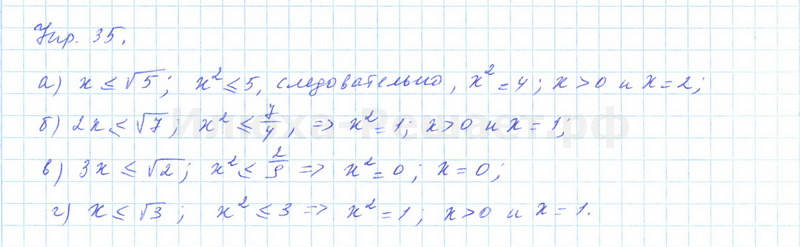 Упр. 35.
а) x ≤ √5; x² ≤ 5, следовательно, x² = 4; x > 0 и x = 2;
б) 2x ≤ √7; x² ≤ 7/4, => x² = 1; x > 0 и x = 1;
в) 3x ≤ √2; x² ≤ 2/9 => x² = 0; x = 0;
г) x ≤ √3; x² ≤ 3 => x² = 1; x > 0 и x = 1.